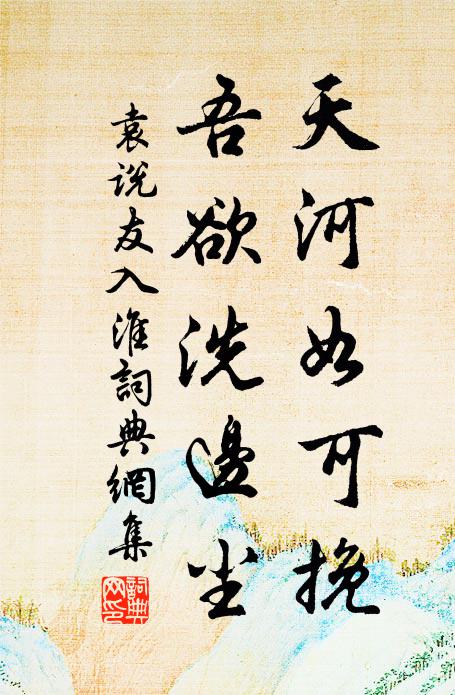 天河如可挽
吾欲洗邊尘
袁说友入淮詞典網集
詞典网印